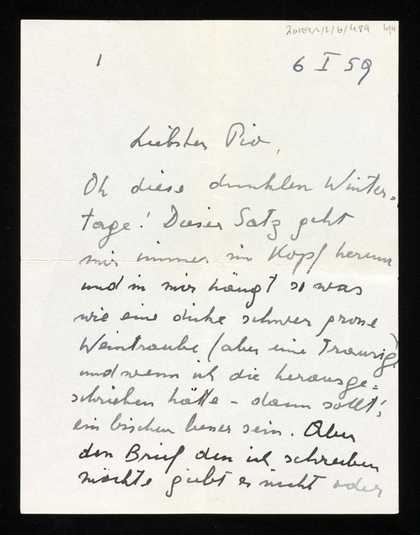 1
6 I 59
Liebster Pio,
Oh diese dunklen Winter-
tage! Dieser Satz geht
mir immer im Kopf herum
und in mir hängt so was
wie eine dicke schwer grosse
Weintraube (aber eine Traurige)
und wenn ich die herausge=
schrieben hätte - dann sollt's
ein bischen besser sein. Aber
den Brief den ich schreiben
möchte giebt es nicht oder